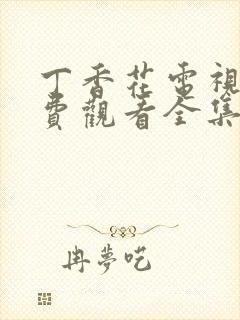 丁香花電視
費觀看全集
冉夢呓